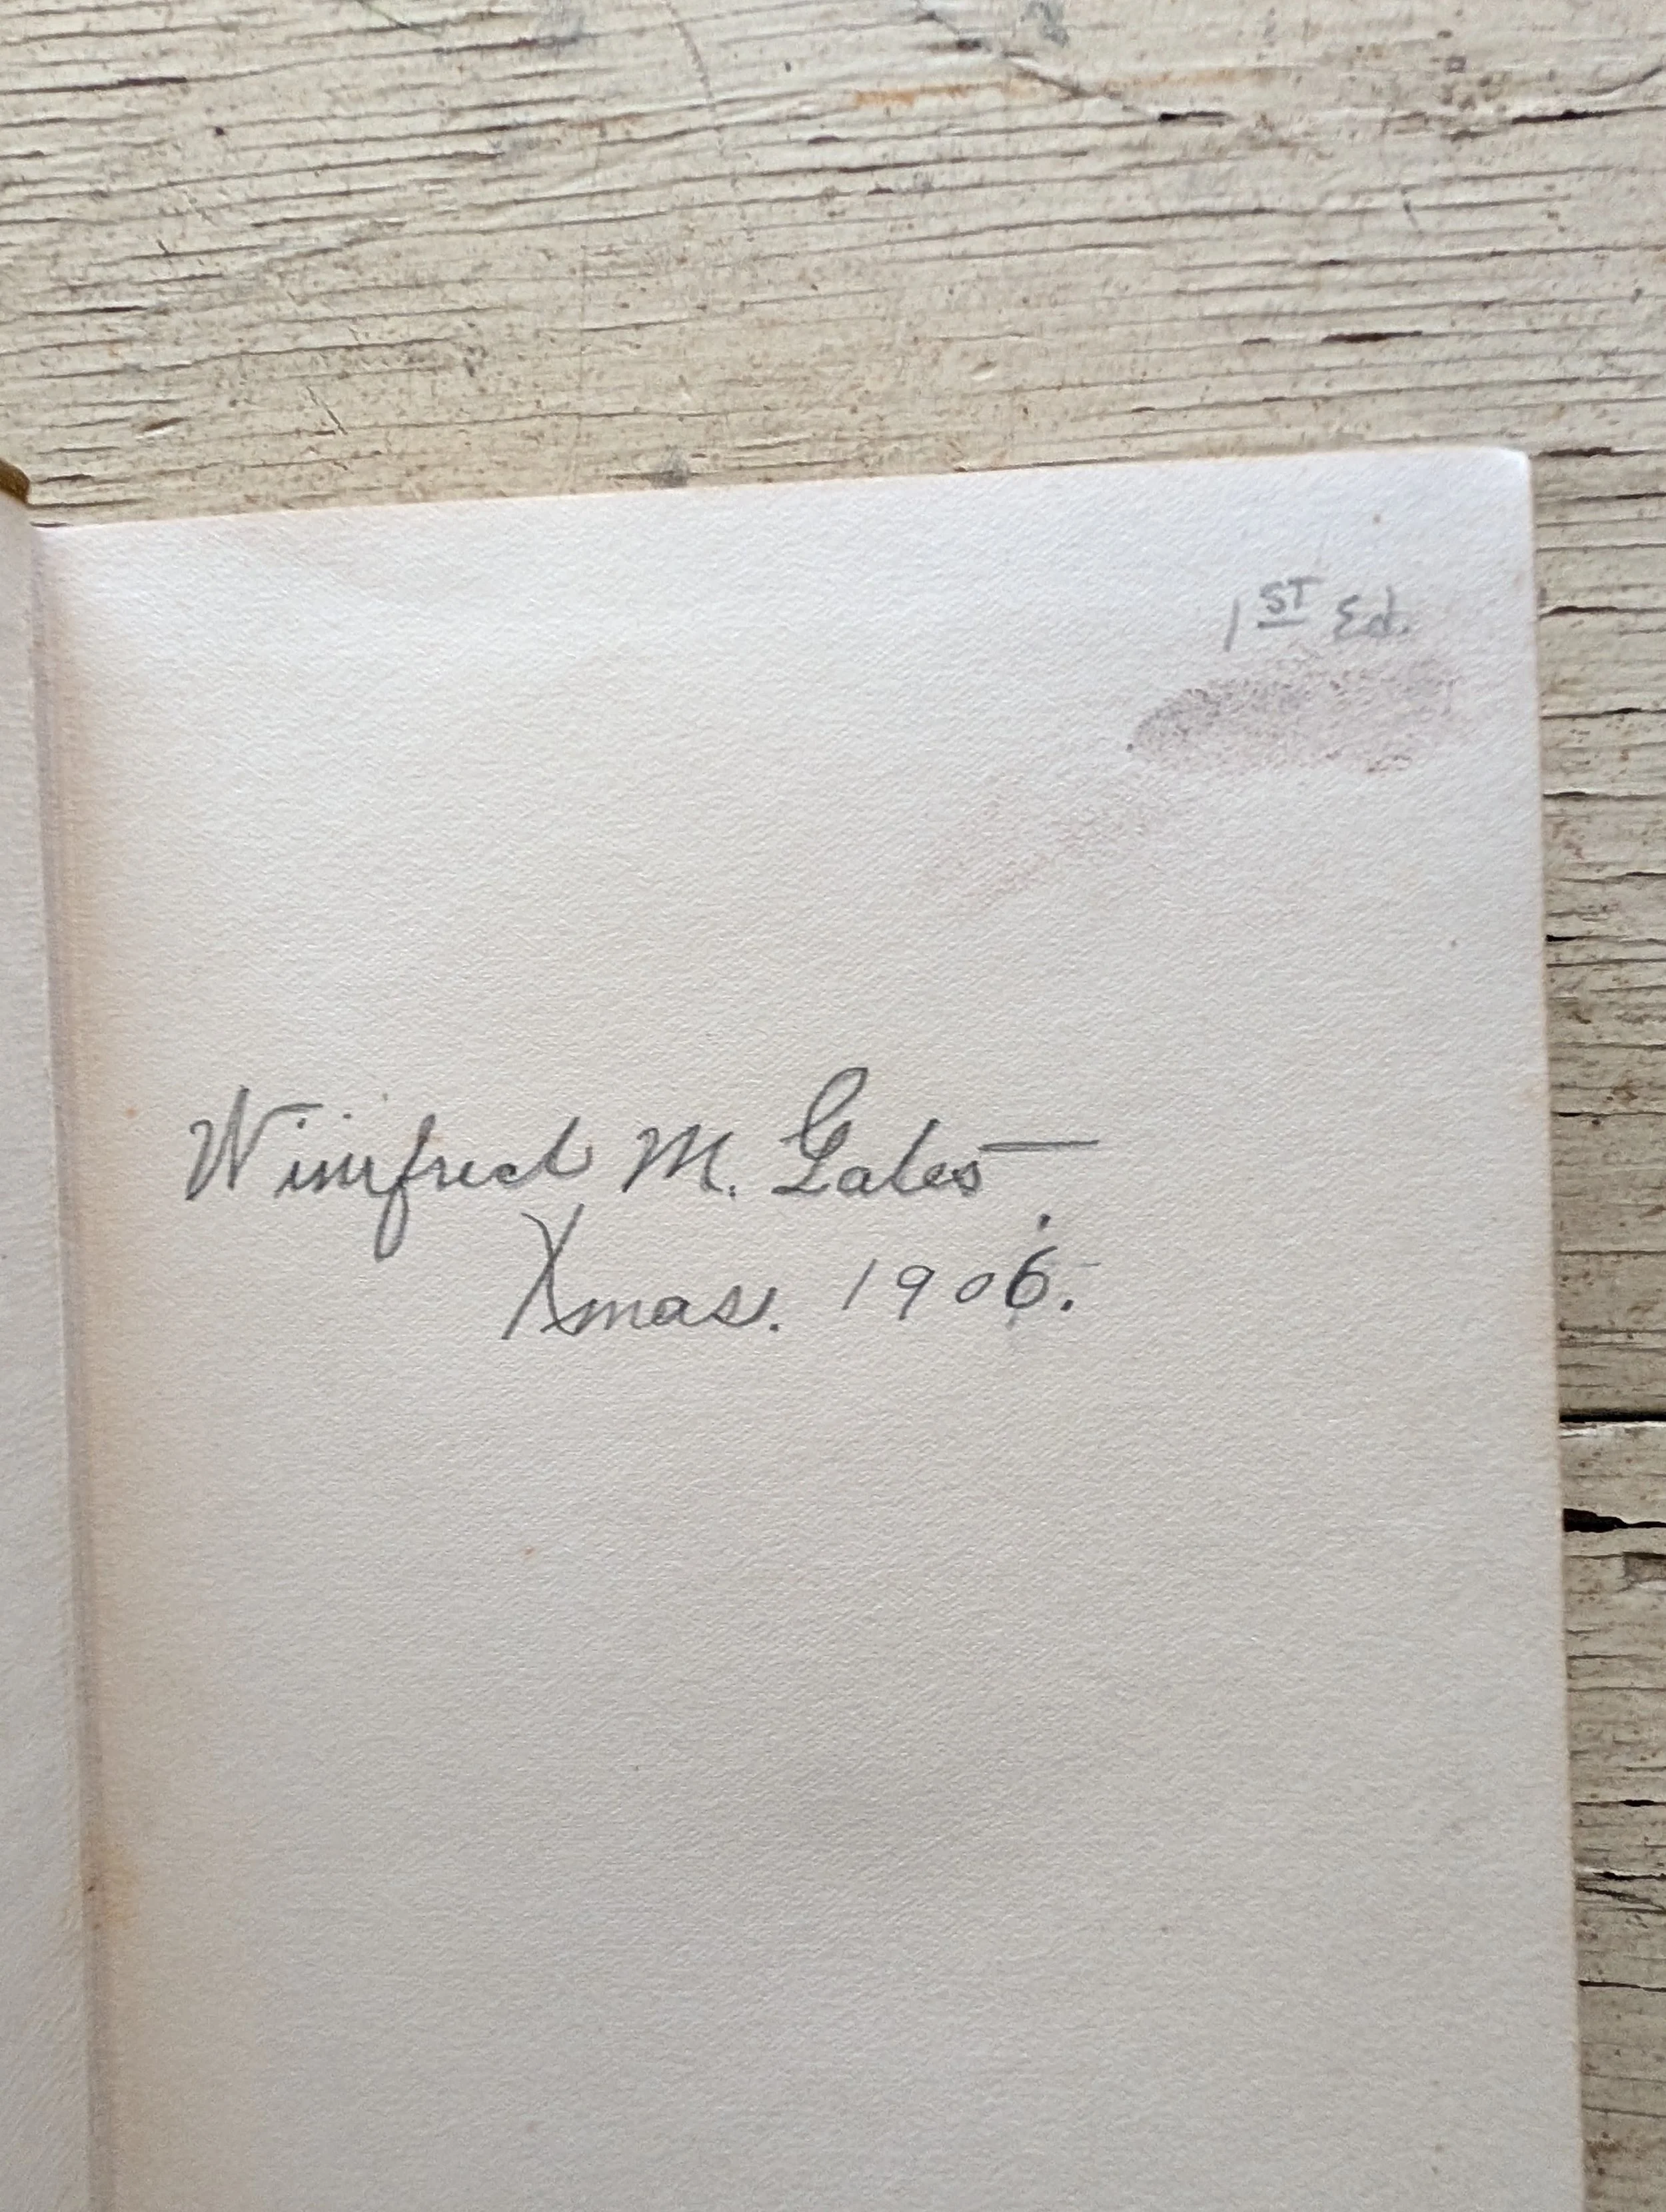 1ST Ed.
Winifred M. Gates
Xmas. 1906.